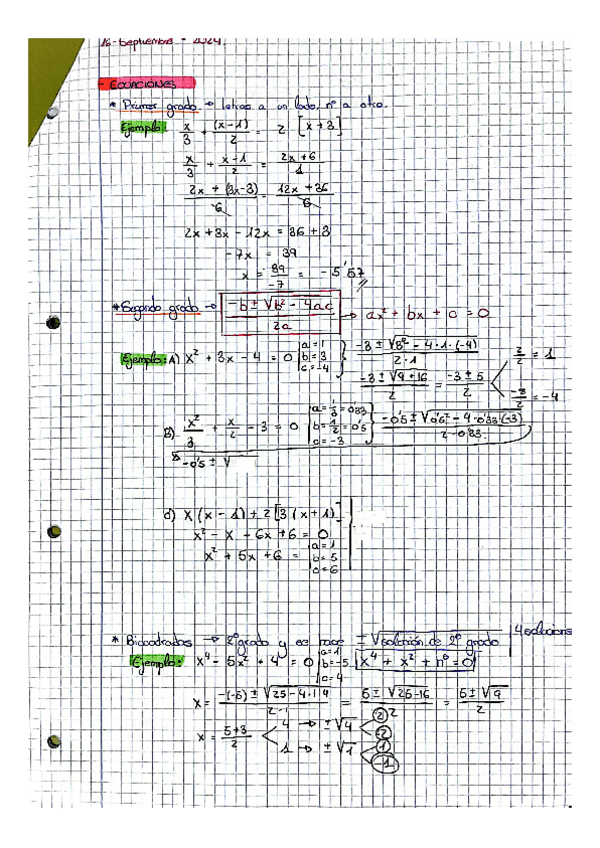 16-Septiembre - 2024.
- ECUACIONES
* Primer grado. → Letras a un lado, nº a otro.
Ejemplo: x/3 + (x-1)/2 = 2 [x+3]
x/3 + x-1/2 = 2x+6/1
2x + (3x-3)/6 = 12x + 36/6
2x + 3x - 12x = 36 + 3
-7x = 39
x = 39/-7 = -5'57
* Segundo grado → -b ± √b² - 4ac / 2a → ax² + bx + c = 0
Ejemplo: A) x² + 3x - 4 = 0 | a = 1 b = 3 c = -4 } -3 ± √3² - 4·1·(-4) / 2·1
-3 ± √9+16 / 2 = -3 ± 5 / 2 < 2/2 = 1
-8/2 = -4
B) x²/3 + x/2 - 3 = 0 | b = 1/2 = 0'5 c = -3 } -0'5 ± √0'5² - 4·0'33·(-3) / 2·0'33.
-0'5 ± √
c) x(x-1) + 2[3(x+1)]
x² - x - 6x + 6 = 0
x² + 5x + 6 = | a = 1 b = 5 c = 6
* Bicuadradas → 2º grado y se hace ± √solución de 2º grado | 4 soluciones
Ejemplo: x⁴ - 5x² + 4 = 0 | a = 1 b = -5 c = 4 | x⁴ + x² + nº = 0
x = -(-5) ± √25-4·1·4 / 2·1 = 5 ± √25-16 / 2 = 5 ± √9 / 2
x = 5±3 / 2 < 4 → ± √4 < 2 -2
1 → ± √1 < 1 -1